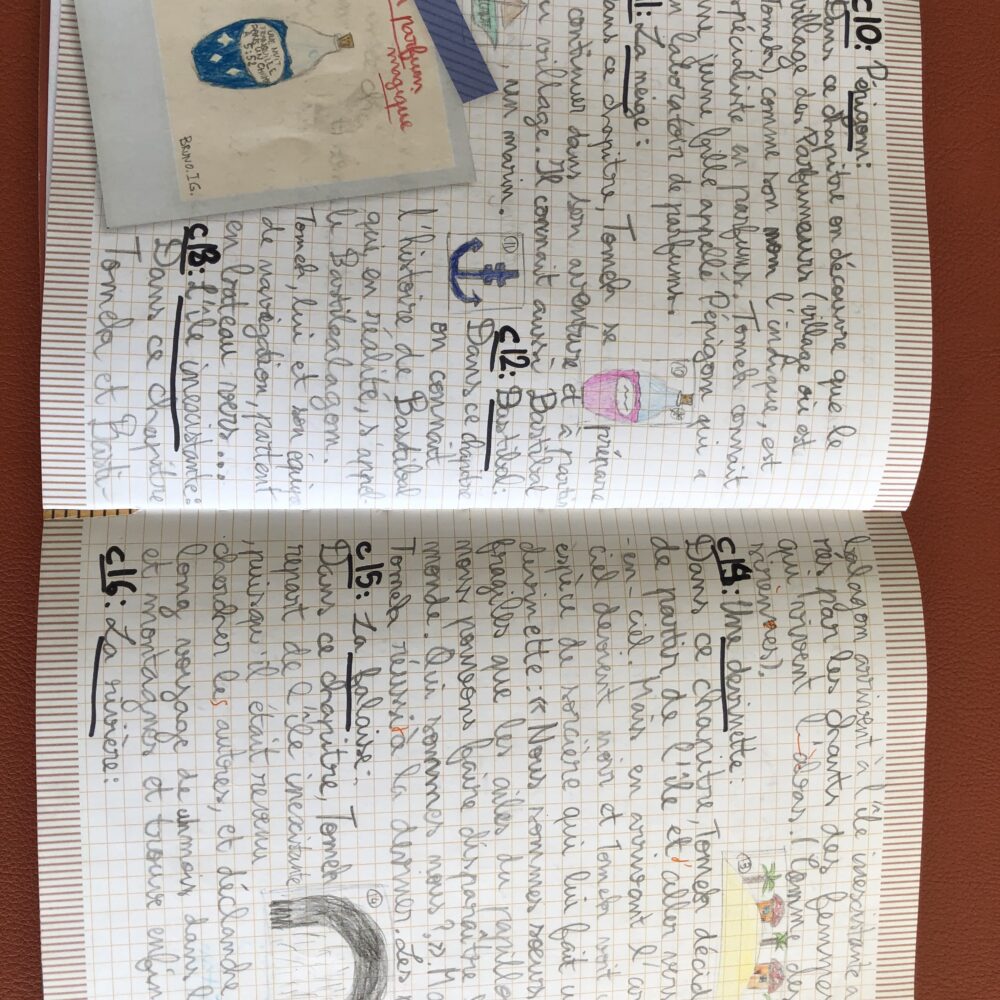 c10: Périgom:
Dans ce chapitre on découvre que le
village des Parfumeurs (village où est
Tomek) comme son nom l'indique, est
spécialiste en parfums. Tomek connait
une jeune fille appellé Pépigom qui a
un laboratoir de parfums.
La neige:
Dans ce chapitre, Tomek se
prépare
continuer dans son aventure et à partir
du village. Il connait aussi Bastibal
, un marin.
10
11
c12: Bastibal:
Dans ce chapitre
on connait
l'histoire de Bastibal
qui, en réalité, s'appel-
le Bastibalagom.
Tomek, lui et son équi
de navigation, partent
en bateau vers...
c13: L'île inexistante:
Dans ce chapitre
Tomek et Basti-
parfum
magique
UNE NUIT
TRANQUILLE
DANS UN
BRUNO.I.G.
balagom arrivent à l'île inexistante a
rés par les chants des femmes
qui vivent dans. (Comme de
sirènnes).
13
c14: Une devinette:
Dans ce chapitre, Tomek décid
de partir de l'île et d'aller vers
-en-ciel. Mais en arrivant l'ar
ciel devient noir et Tomek voit u
espèce de sorcière qui lui fait u
devinette: « Nous sommes soeurs
fragiles que les ailes du papillo
nous pouvons faire disparaître
monde. Qui sommes nous ? ». Ma
Tomek réussit à la deviner. Les
c15: La falaise:
Dans ce chapitre, Tomek
repart de l'île inexistante
, puisqu'il était revenu
chercher les autres, et déclanche
long voyage de un mois dans l
et montagnes et trouve enfin
14
c16: La rivière: